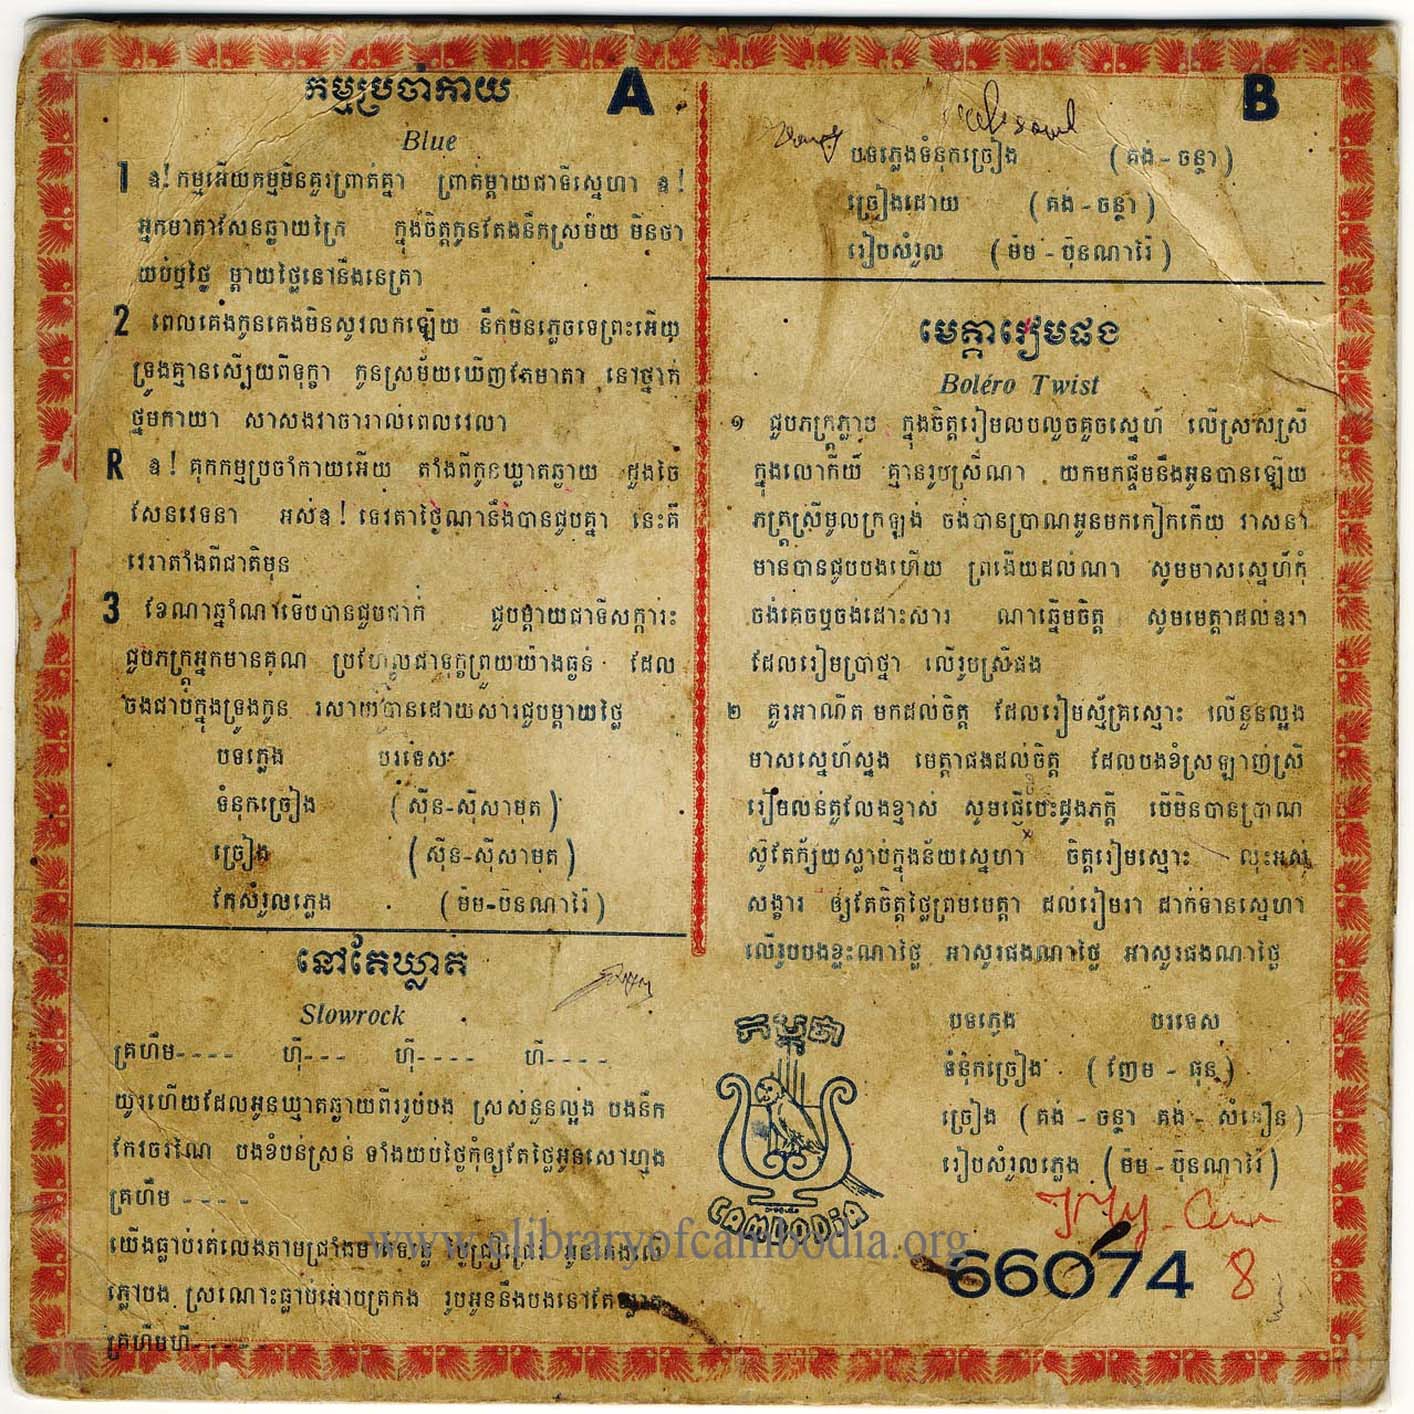 កម្មប្រចាំកាយ A
Blue
1 ឧ! កម្មអើយកម្មមិនគួរព្រាត់គ្នា ព្រាតម្តាយជាទីស្នេហា ឧ!
អ្នកមាតាសែនឆ្ងាយក្រៃ ក្នុងចិត្តកូនតែងនឹកស្រម័យ មិនថា
យប់ឬថ្ងៃ ម្តាយថ្លៃនៅនឹងនេត្រា
2 ពេលគេងកូនគេងមិនសូវលកឡើយ នឹកមិនភ្លេចទេព្រះអើយ
ទ្រូងគ្មានស្បើយពីទុក្ខា កូនស្រម័យឃើញតែមាតា នៅថ្នាក់
ថ្នមកាយា សាសងវាចារាល់ពេលវេលា
R ឧ! គុកកម្មប្រចាំកាយអើយ តាំងពីកូនឃ្លាតឆ្ងាយ ដួងចៃ
សែនវេទនា អស់ឧ! ទេវតាថ្ងៃណានឹងបានជួបគ្នា នេះគឺ
វេរាតាំងពីជាតិមុន
3 ខែណាឆ្នាំណាទើបបានជួបជាក់ ជួបម្តាយជាទីសក្ការះ
ជួបភក្ត្រអ្នកមានគុណ ប្រហែលជាទុក្ខព្រួយយ៉ាងធ្ងន់ ដែល
ចងជាប់ក្នុងទ្រូងកូន រសាយបានដោយសារជួបម្តាយថ្លៃ
បទភ្លេង បរទេស
ទំនុកច្រៀង (ស៊ីន-ស៊ីសាមុត)
ច្រៀង (ស៊ីន-ស៊ីសាមុត)
កែសំរួលភ្លេង (ម៉ម-ប៊ុនណារ៉ៃ)
នៅតែឃ្លាត
Slowrock
គ្រហឹម---- ហ៊ឺ--- ហ៊ឺ---- ហឺ----
យូរហើយដែលអូនឃ្លាតឆ្ងាយពីររូបបង ស្រស់នួនល្អង បងនឹក
កែវចរណៃ បងខំបន់ស្រន់ ទាំងយប់ថ្ងៃកុំឲ្យតែថ្លៃអូនសៅហ្មង
គ្រហឹម ----
យើងធ្លាប់រត់លេងតាមជ្រាំងមាត់ទន្លេ អូនគេងលើ
ភ្លៅបង ស្រណោះធ្លាប់អោបត្រកង រូបអូននឹងបងនៅតែឃ្លាត
គ្រហឹមហឺ-----
B
បទភ្លេងទំនុកច្រៀង (គង់ - ចន្ថា)
ច្រៀងដោយ (គង់ - ចន្ថា)
រៀបសំរួល (ម៉ម - ប៊ុនណារ៉ៃ)
មេត្តារៀមផង
Boléro Twist
១ ជួបភក្ត្រភ្លាម ក្នុងចិត្តរៀមលបលួចគួចស្នេហ៍ លើស្រស់ស្រី
ក្នុងលោកីយ៍ គ្មានរូបស្រីណា យកមកផ្ទឹមនឹងអូនបានឡើយ
ភក្ត្រស្រីមូលក្រឡង់ ចង់បានប្រាណអូនមកកៀកកើយ វាសនា
មានបានជូបបងហើយ ព្រងើយដល់ណា សូមមាសស្នេហ៍កុំ
ចង់គេចឬចង់ដោះសារ ណាឆ្នើមចិត្ត សូមមេត្តាដល់ឧរា
ដែលរៀមប្រាថ្នា លើរូបស្រីផង
២ គួរអាណិត មកដល់ចិត្ត ដែលរៀមស្ម័គ្រស្មោះ លើនួនល្អង
មាសស្នេហ៍ស្នង មេត្តាផងដល់ចិត្ត ដែលបងខំស្រឡាញ់ស្រី
រៀមលន់តួលែងខ្មាស់ សូមផ្ញើបេះដូងភក្តី បើមិនបានប្រាណ
ស៊ូតែក្ស័យស្លាប់ក្នុងន័យស្នេហា ចិត្តរៀមស្មោះ លុះអស់
សង្ខារ ឲ្យតែចិត្តថ្លៃព្រមមេត្តា ដល់រៀមរា ដាក់ទានស្នេហា
លើរូបបងខ្លះណាថ្លៃ អាសូរផងណាថ្លៃ អាសូរផងណាថ្លៃ
បទភ្លេង បរទេស
ទំនុកច្រៀង (ញ៉ែម - ផុន)
ច្រៀង (គង់ - ចន្ថា គង់ - សំអឿន)
រៀបសំរួលភ្លេង (ម៉ម - ប៊ុនណារ៉ៃ)
កម្ពុជា
CAMBODIA
66074 8
www.elibraryofcambodia.org